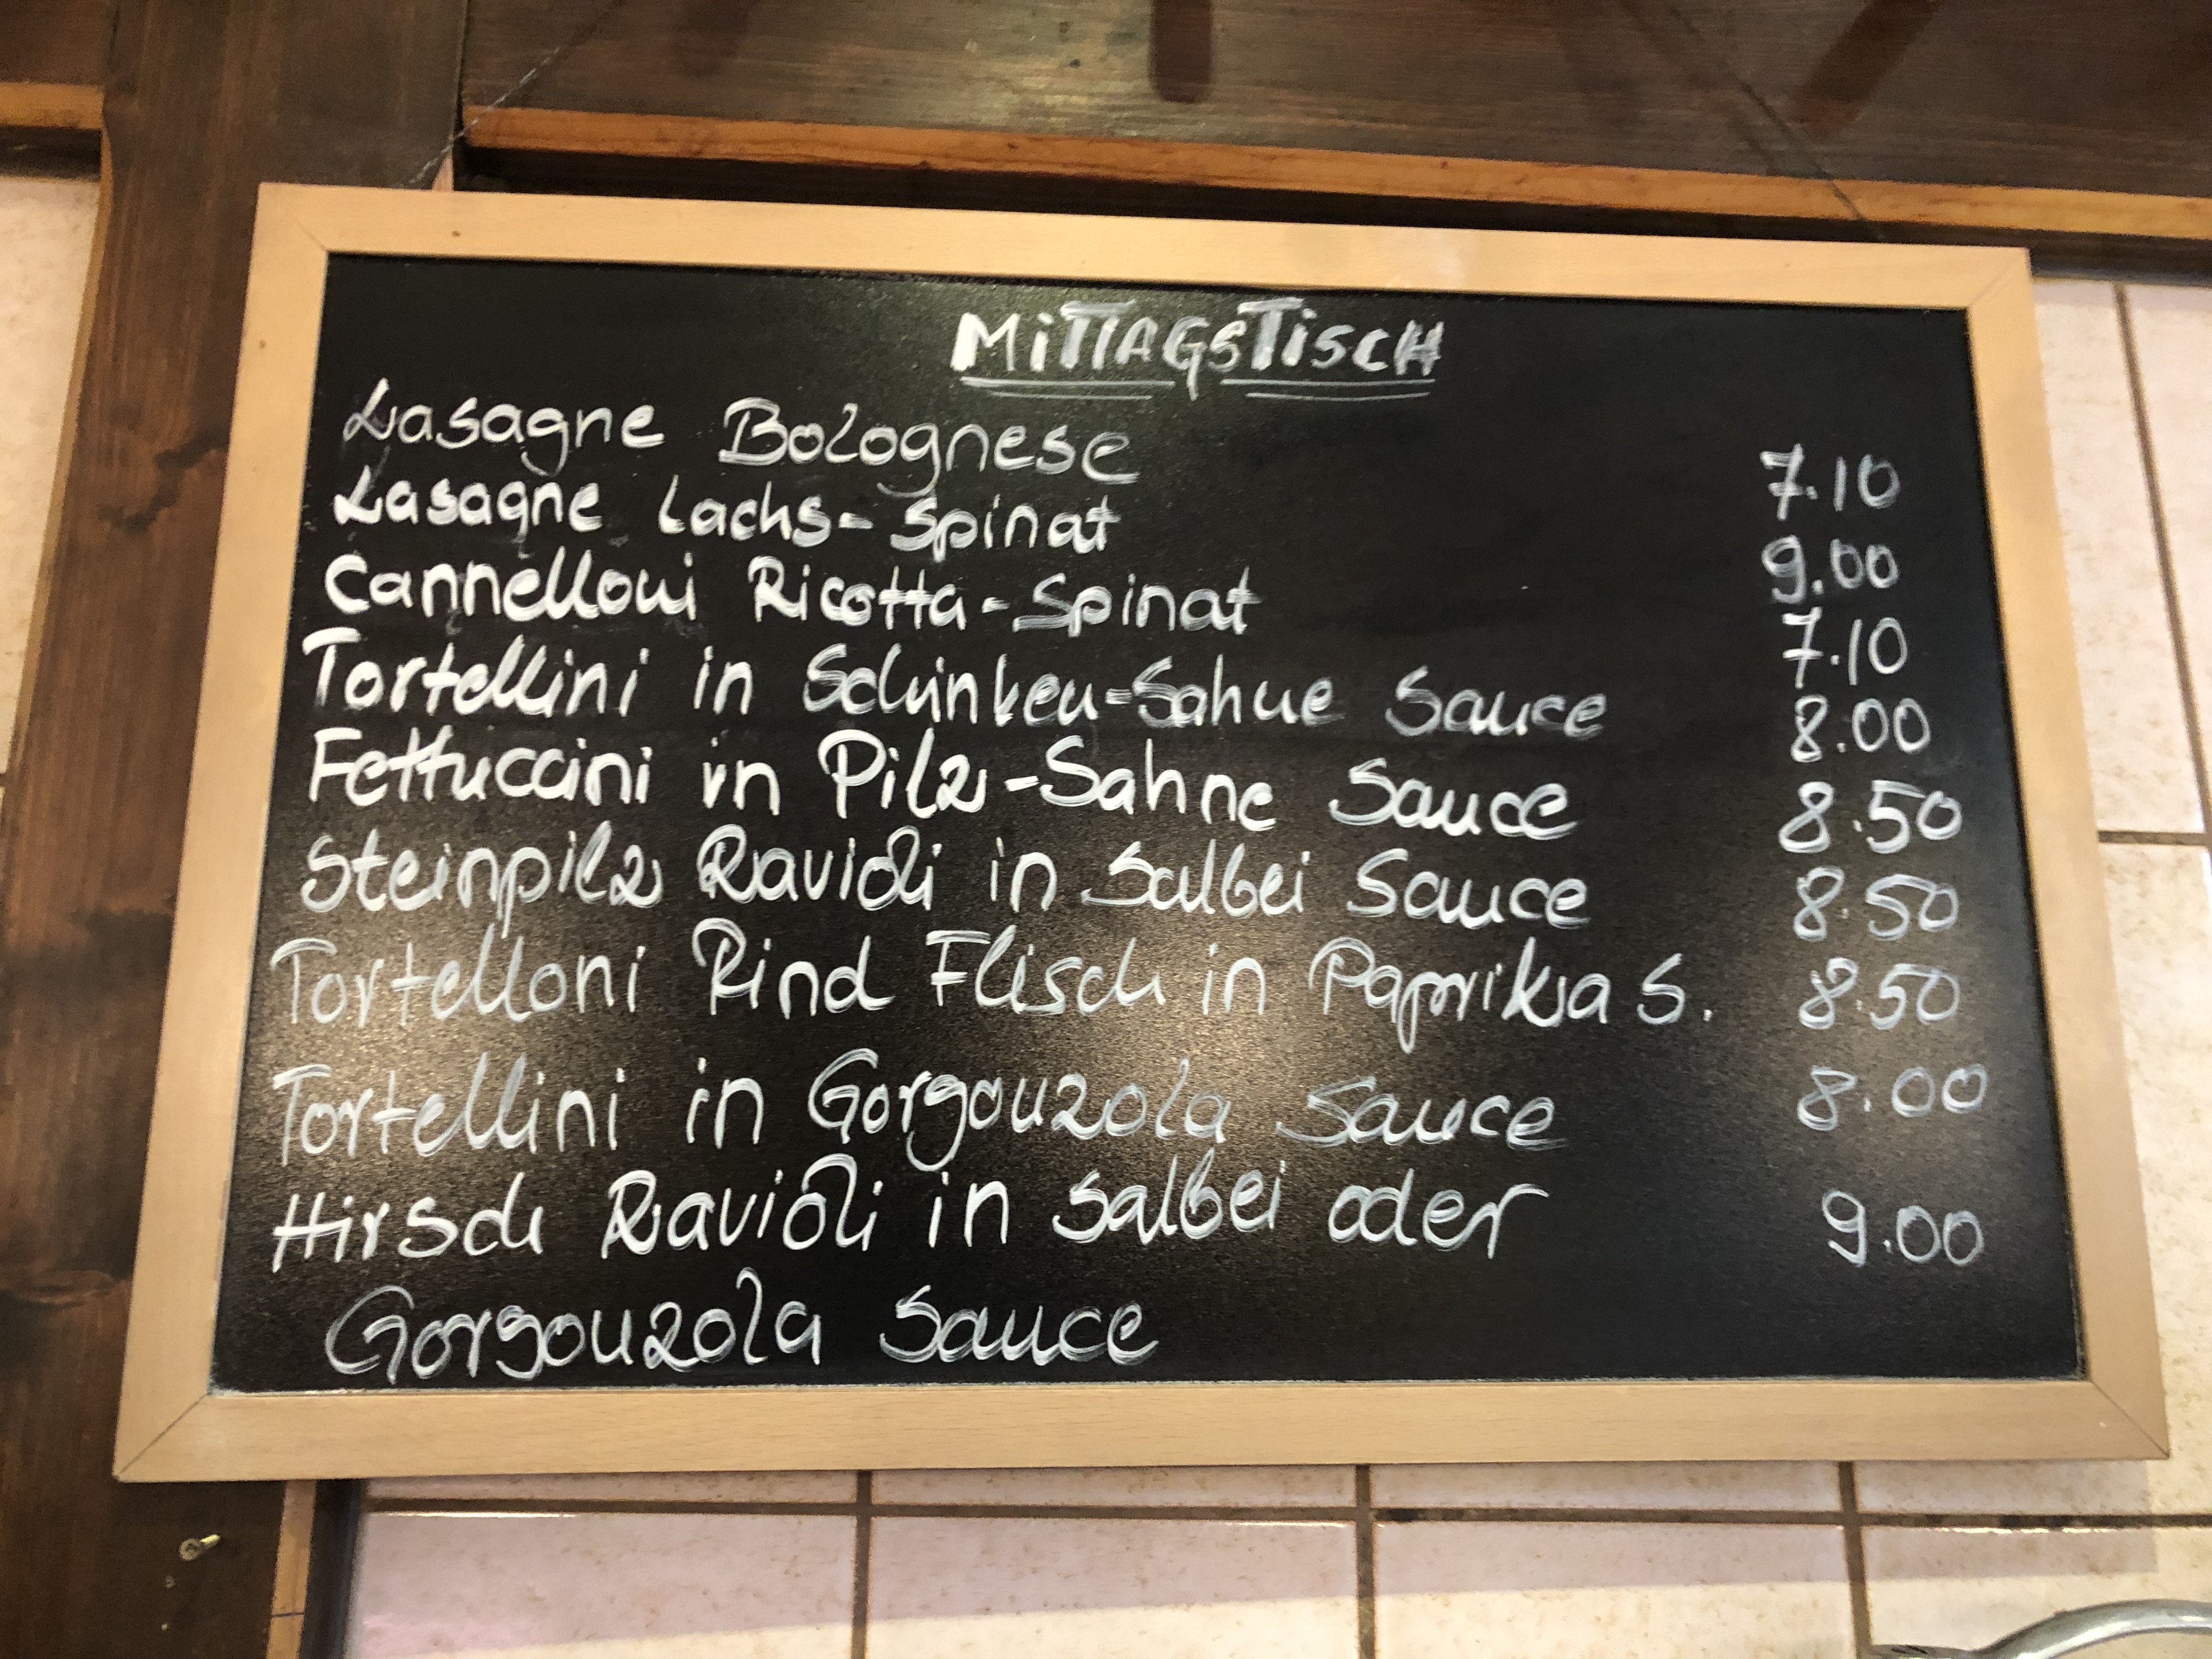 MiTTAGSTiSCH
Lasagne Bolognese 7.10
Lasagne Lachs-Spinat 9.00
Cannelloni Ricotta-Spinat 7.10
Tortellini in Schinken-Sahne Sauce 8.00
Fettuccini in Pilz-Sahne Sauce 8.50
Steinpilz Ravioli in Salbei Sauce 8.50
Tortelloni Rind Flisch in Paprika S. 8.50
Tortellini in Gorgonzola Sauce 8.00
Hirsch Ravioli in Salbei oder 9.00
Gorgonzola Sauce